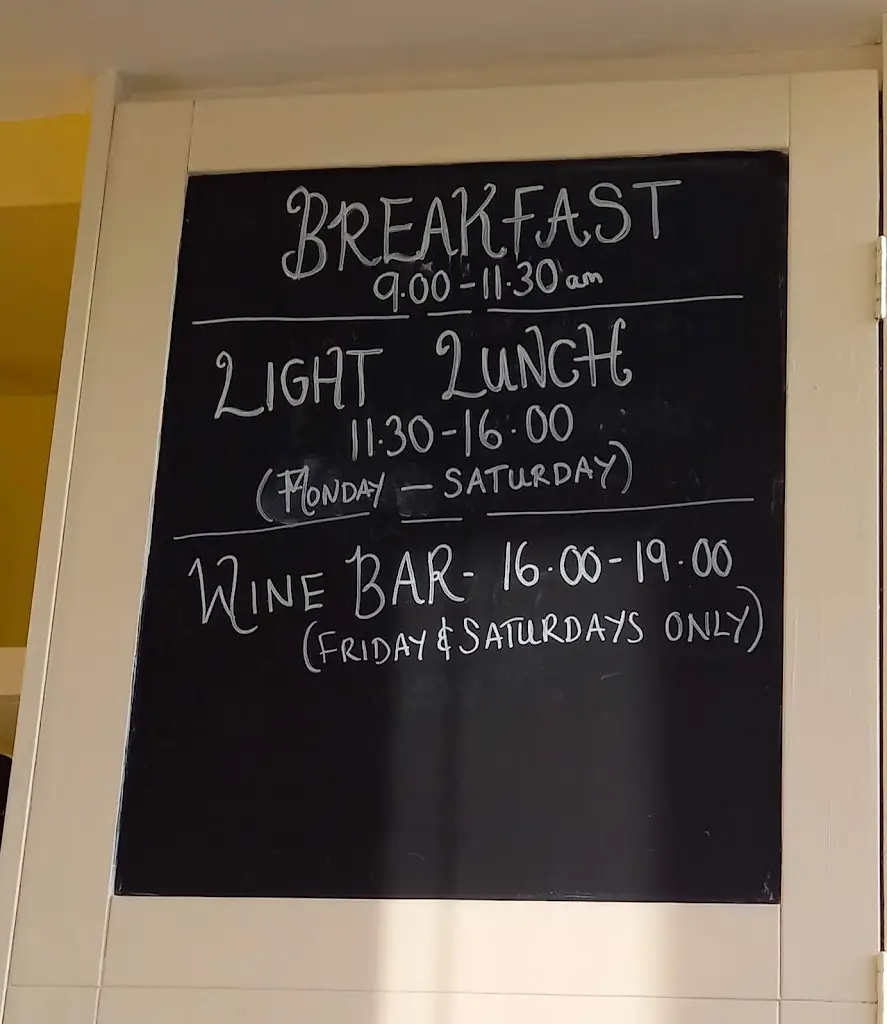 BREAKFAST
9.00-11.30 am
LIGHT LUNCH
11.30-16.00
(MONDAY - SATURDAY)
WINE BAR- 16.00-19.00
(FRIDAY & SATURDAYS ONLY)